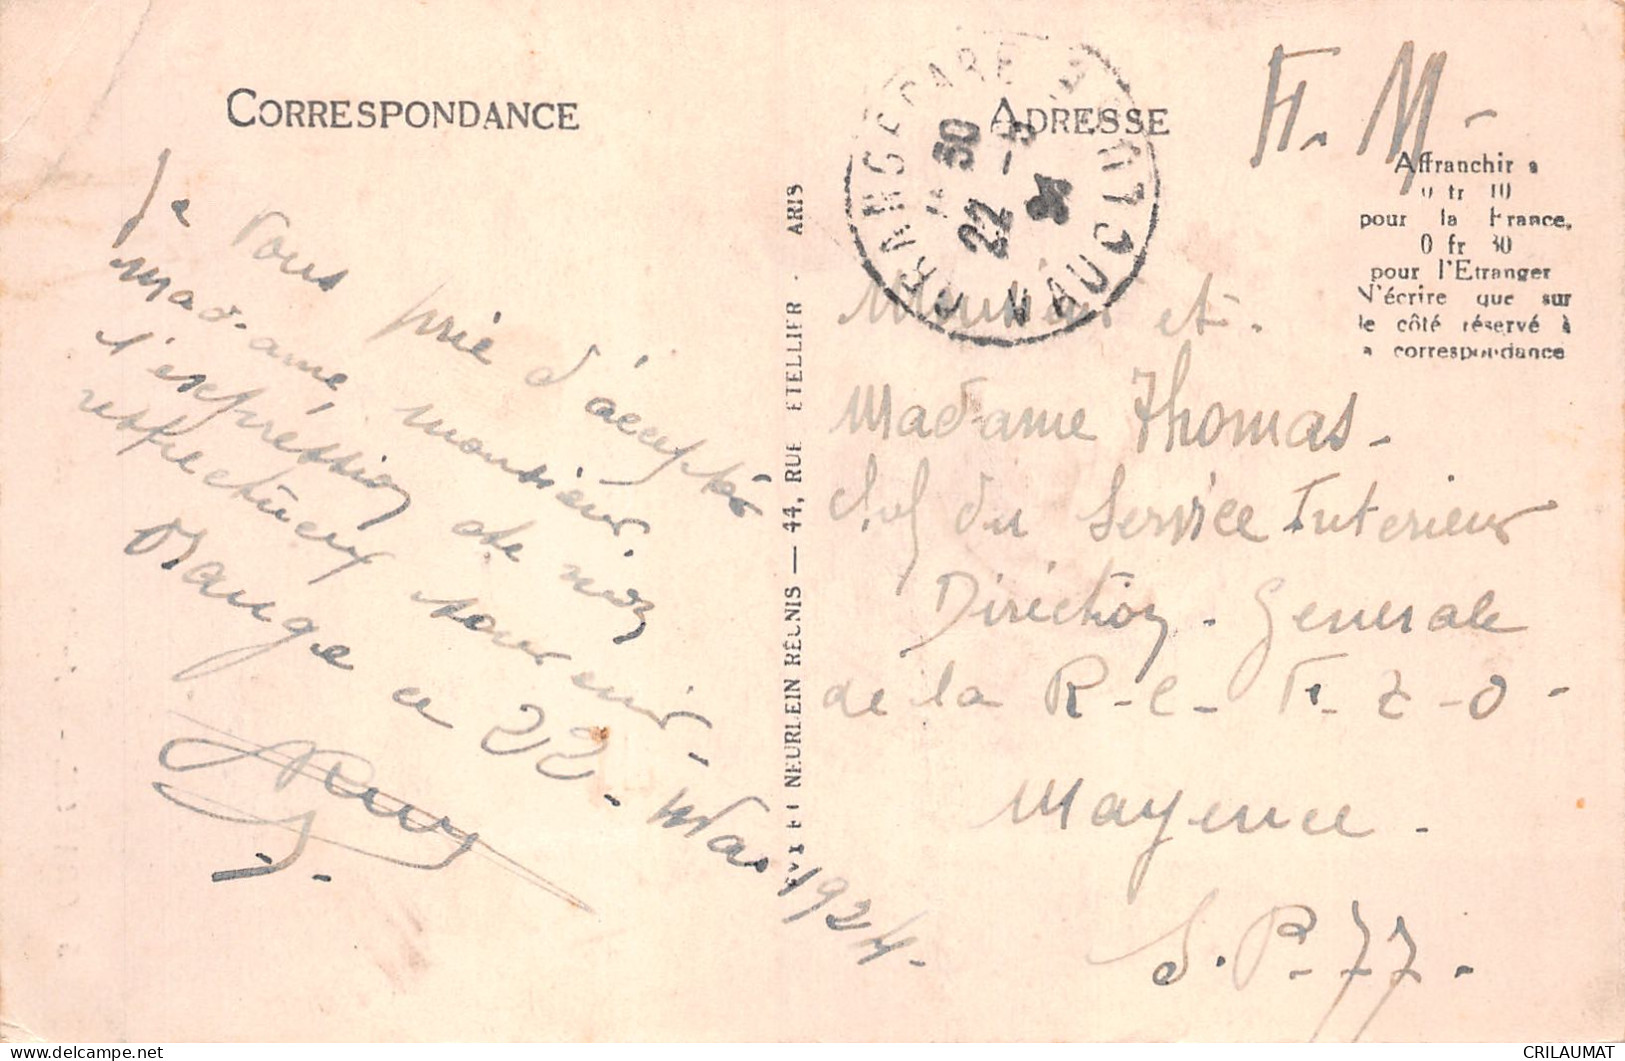 CORRESPONDANCE
Je vous prie d'accepter
Madame, monsieur,
l'expression de mon
respectueux souvenir -
Orange ce 22 - Mai 1924 -
NEURDEIN RÉUNIS — 44, RUE ETELLIER · ARIS
ADRESSE
ORANGE GARE
VAUCLUSE
30
22 -5
24
F. M -
Affranchir a
0 fr 10
pour la France,
0 fr 30
pour l'Etranger
N'écrire que sur
le côté réservé à
a correspondance
Monsieur et -
Madame Thomas -
Chef du Service Interieur
Diréction - Generale
de la R - C - F. T - O -
Mayence -
S. P - 77 -
CRILAUMAT